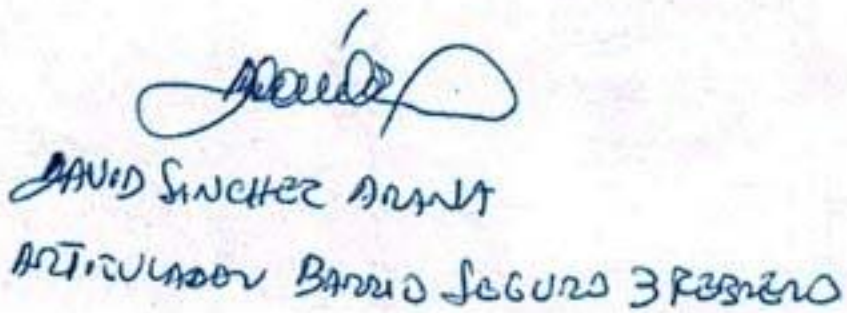 DAVID SANCHEZ ARANA
ARTICULADOR BARRIO SEGURO 3 FEBRERO